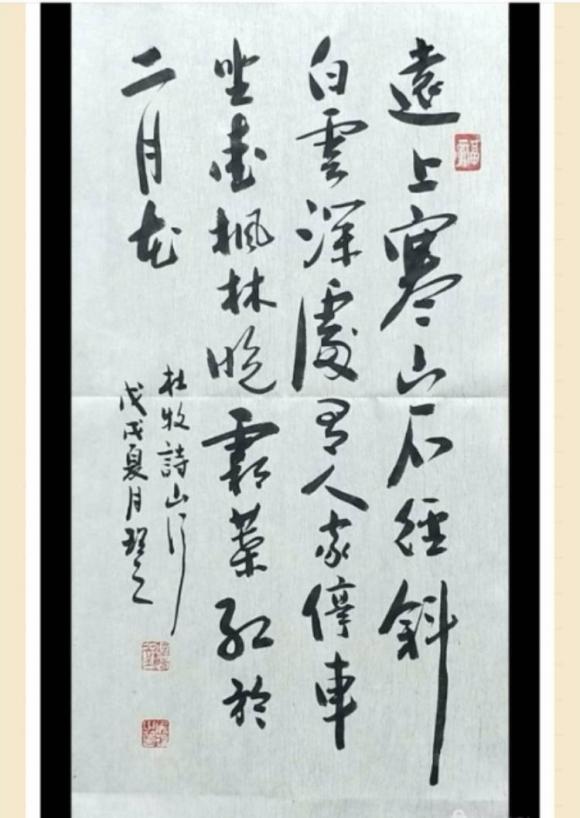 福
遠上寒山石徑斜
白雲深處有人家停車
坐愛楓林晚霜葉紅於
二月花
杜牧詩山行
戊戌夏月